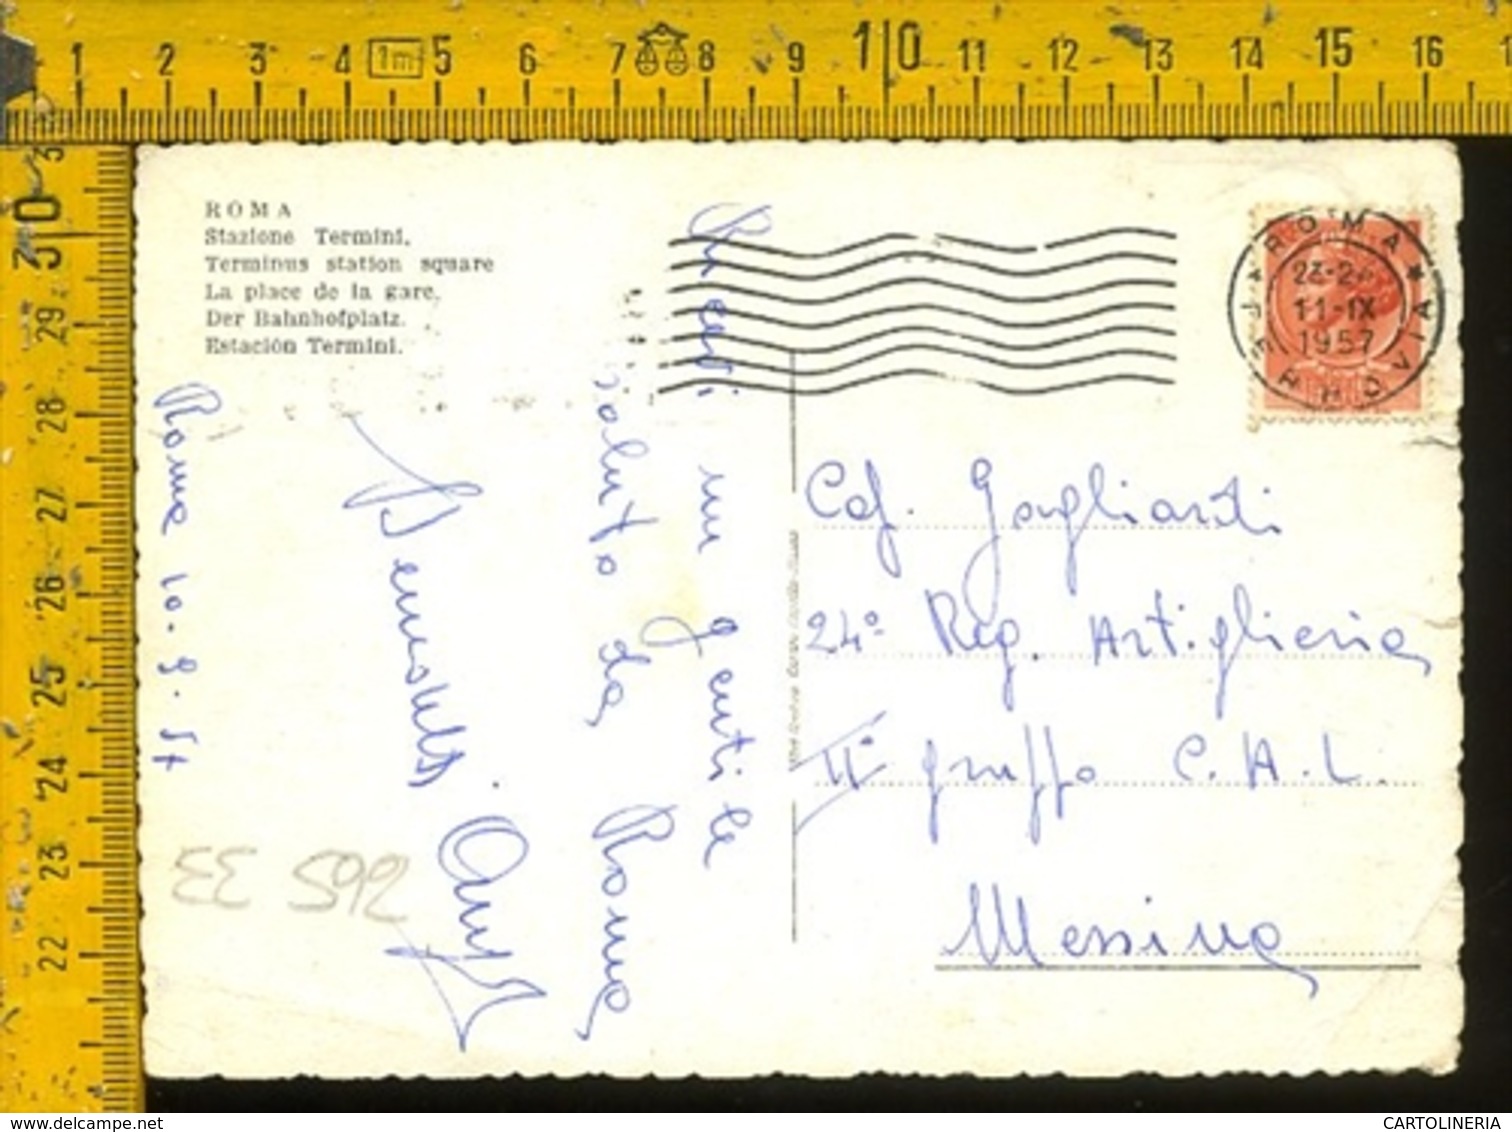 1 2 3 4 1m 5 6 7 8 9 10 11 12 13 14 15 16
ROMA
Stazione Termini.
Terminus station square
La place de la gare.
Der Bahnhofplatz.
Estación Termini.
ROMA FERROVIA
23-24
11-IX
1957
Ricevi un gentile
saluto da Roma
Roma 10.9.57
Caf. Gagliardi
24° Reg. Artiglieria
II° gruppo C.A.L.
Messina
EE 592
30
29
28
27
26
25
24
23
22
www.delcampe.net
CARTOLINERIA